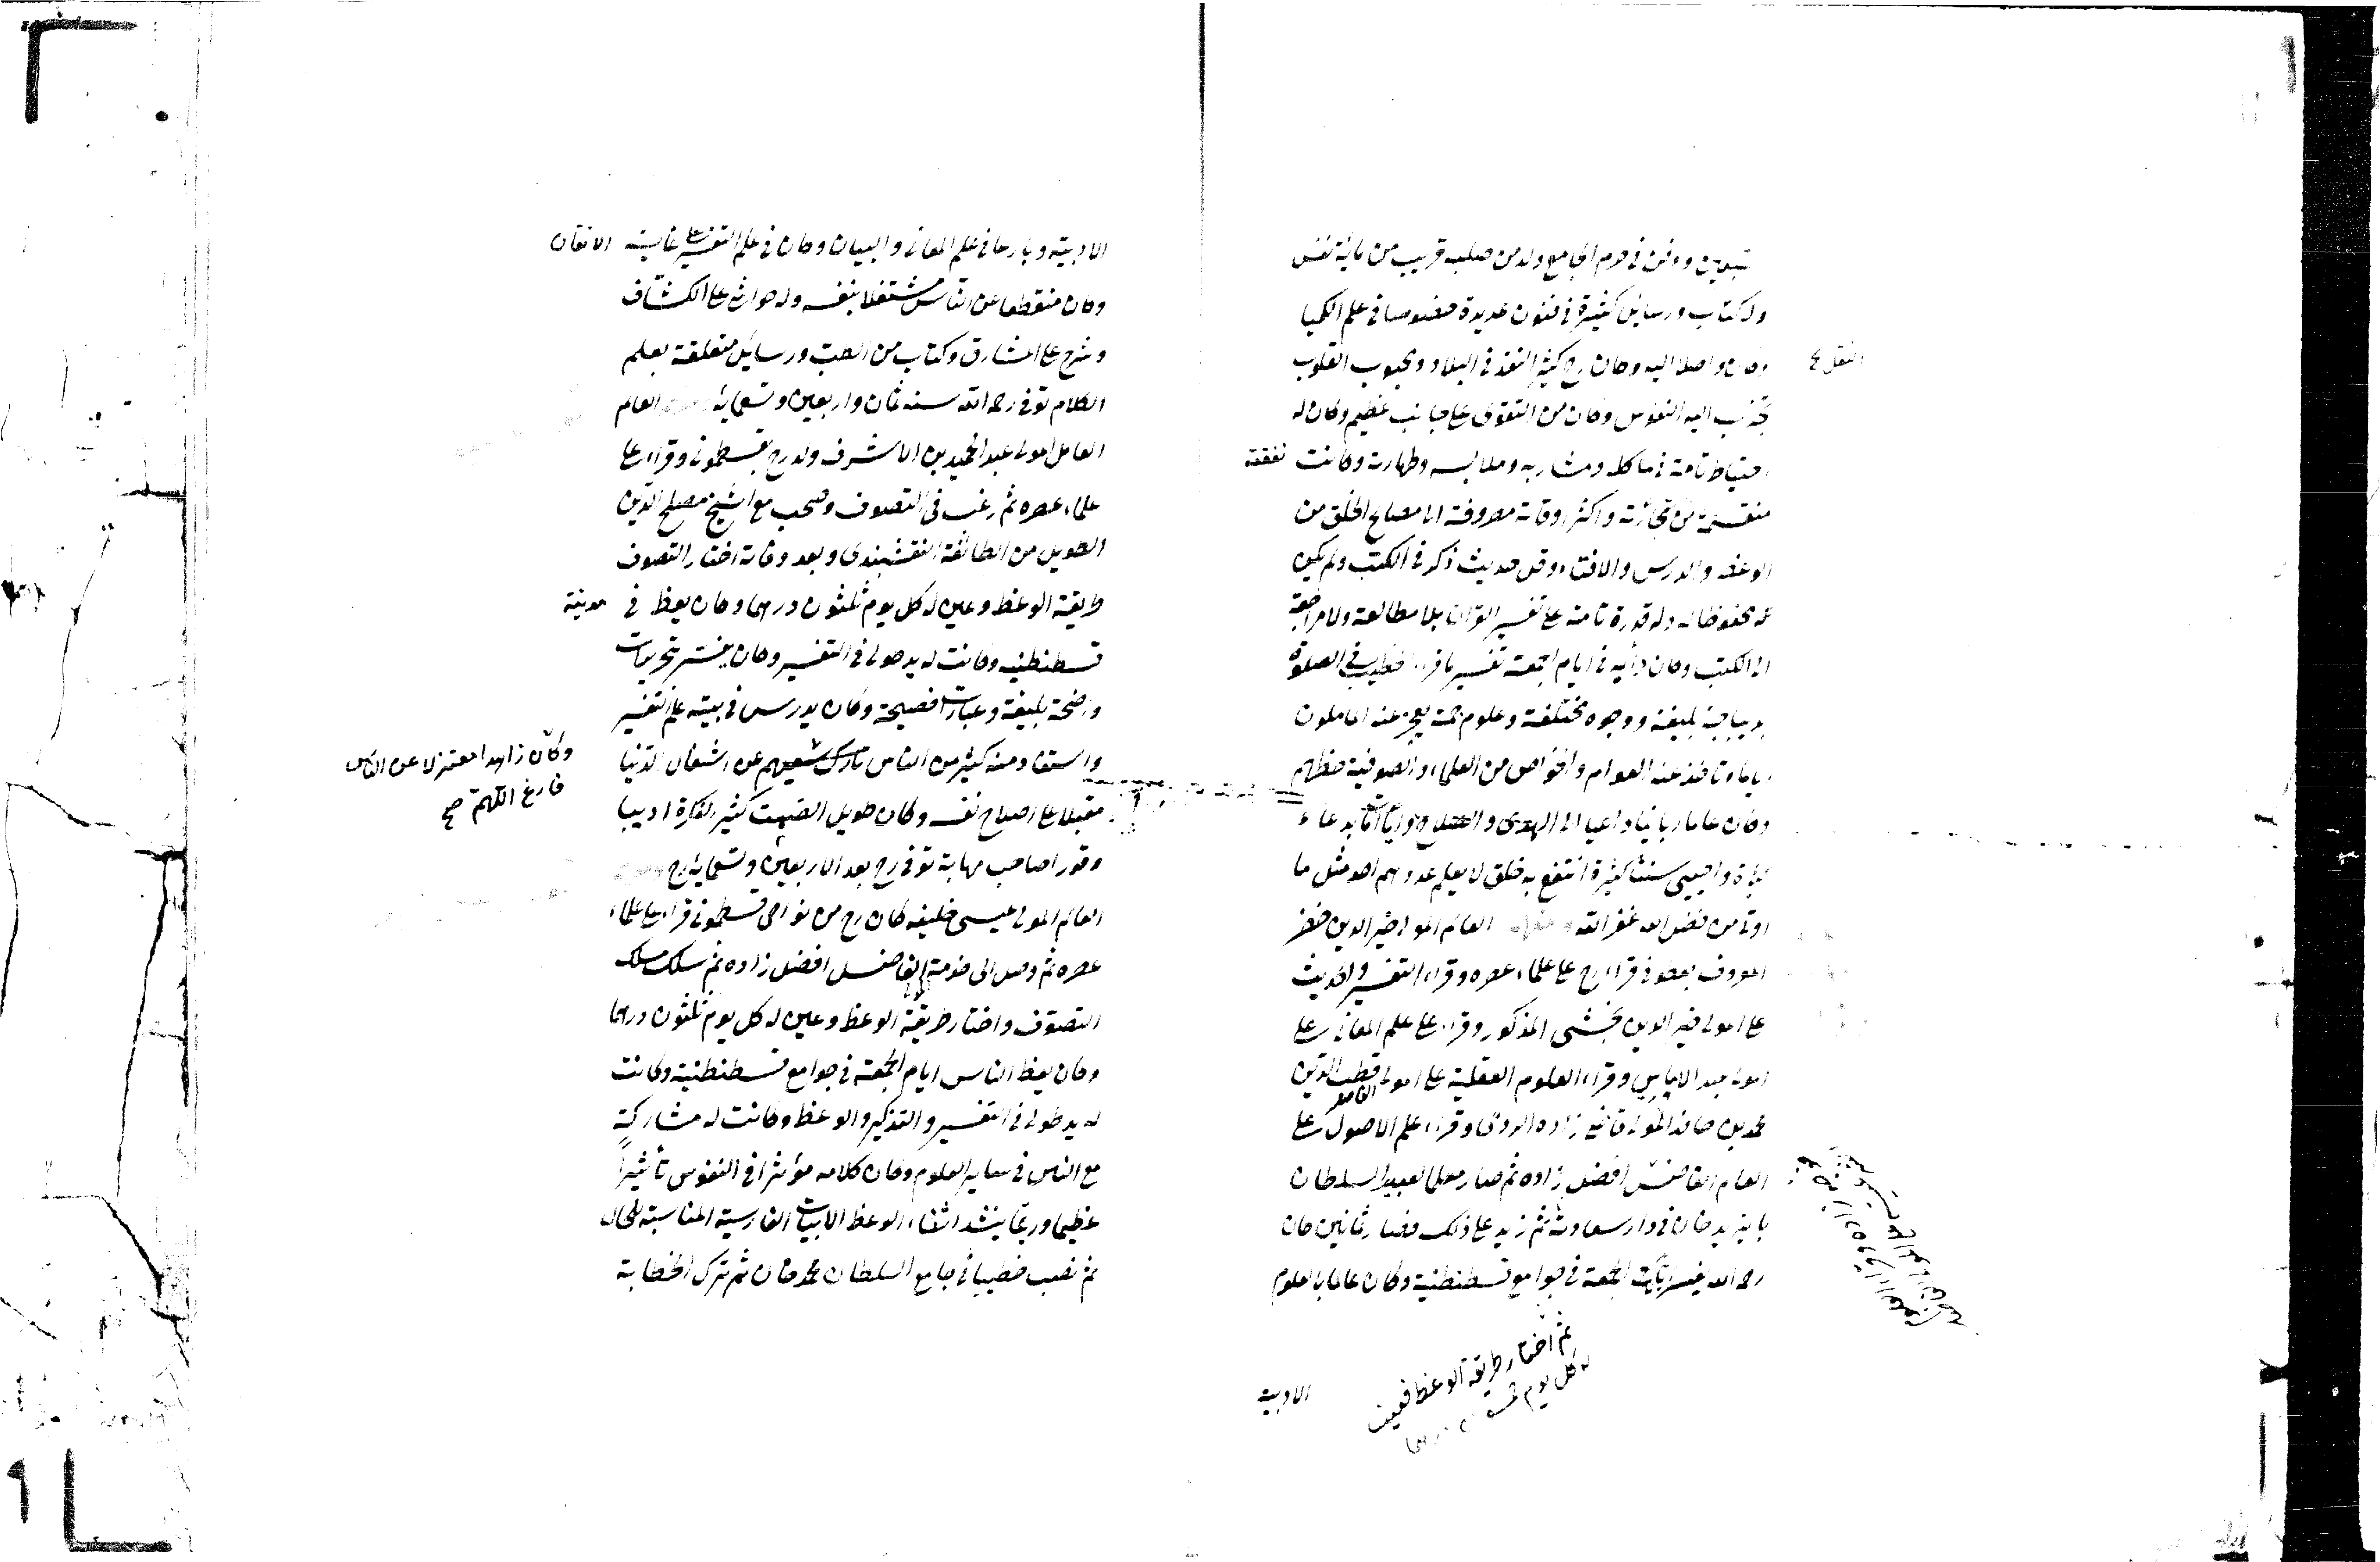 ودفن في حرم الجامع ولد من صلبه قريب من مائة نفس
وله كتاب ورسايل كثيرة في فنون عديدة خصوصا في علم الكميا
وكان واصلا اليه وكان رح كثير النقد في البلاد ومحبوب القلوب
تجذب اليه النفوس وكان من التقوى على جانب عظيم وكان له
احتياط تامة في ماكله ومشاربه وملابسه وطهارته وكانت نفقته
من تجارته واكثر اوقاته مصروفة الى مصالح الخلق من
الوعظ والدرس والافتاء وقل حديث ذكر في الكتب ولم يكن
محفوظا له وله قدرة تامة على تفسير القران بلا مطالعة ولا مراجعة
الى الكتب وكان دأبه في ايام الجمعة تفسير ما قراء الخطيب في الصلوة
بديباجة بليغة ووجوه مختلفة وعلوم جمة يعجز عنه الكاملون
وتاخذ عنه العوام والخواص من العلماء والصوفية حظهم
وكان عالما ربانيا داعيا الى الهدى والصلاح
واحيى سننا كثيرة انتفع به خلق لا يعلم عددهم احد مثل ما
اوتي من فضل الله غفر الله العالم المولى خير الدين خضر
المعروف بعطوفي قراء رح على علماء عصره وقراء التفسير والحديث
على المولى خير الدين بخشى المذكور وقراء على علم المعاني على
المولى عبد الاماسي وقراء العلوم العقلية على المولى قطب الدين
محمد من حفاد المولى الفاضل قاضي زاده الرومي وقراء علم الاصول على
العالم الفاضل افضل زاده ثم صار معلما لعبيد السلطان
بايزيد خان في دار سعادته ثم زيد على ذلك فصار ثمانين كان
رحمه الله يفسر ايام الجمعة في جوامع قسطنطنية وكان عالما بالعلوم
ثم اختار طريقة الوعظ فعين
له كل يوم
الادبية
الادبية وبارعا في علم المعاني والبيان وكان في علم التفسير على غاية الاتقان
وكان منقطعا عن الناس مشتغلا بنفسه وله حواش على الكشاف
وشرح على المشارق وكتاب من الطب ورسايل متعلقة بعلم
الكلام توفي رحمه الله سنه ثمان واربعين وتسعمائه العالم
العامل المولى عبد الحميد بن الاشرف ولد رح بقسطموني وقراء على
علماء عصره ثم رغب في التصوف وصحب مع الشيخ مصلح الدين
الطويل من الطائفة النقشبندي وبعد وفاته اختار التصوف
طريقة الوعظ وعين له كل يوم ثلثون درهما وكان يعظ في مدينة
قسطنطنيه وكانت له يد طولى في التفسير وكان يفسر بتحريرات
واضحة بليغة وعبارات فصيحة وكان يدرس في بيته علم التفسير
واستفاد منه كثير من الناس تارك عن اشغال الدنيا
وكان زاهدا معتزلا عن الناس
فارغ الهم صح
مقبلا على اصلاح نفسه وكان طويل الصمت كثير الفكرة اديبا
وقورا صاحب مهابة توفي رح بعد الاربعين وتسعمايه رح
العالم المولى عيسى خليفه كان رح من نواحي قسطموني قراء على علماء
عصره ثم وصل الى خدمة المولى الفاضل افضل زاده ثم سلك مسلك
التصوف واختار طريقة الوعظ وعين له كل يوم ثلثون درهما
وكان يعظ الناس ايام الجمعة في جوامع قسطنطنية وكانت
له يد طولى في التفسير والتذكير والوعظ وكانت له مشاركة
مع الناس في ساير العلوم وكان كلامه مؤثرا في النفوس تأثيرا
عظيما وربما ينشد اثناء الوعظ الابيات الفارسية المناسبة للحال
ثم نصب خطيبا في جامع السلطان محمد خان ثم ترك الخطابة